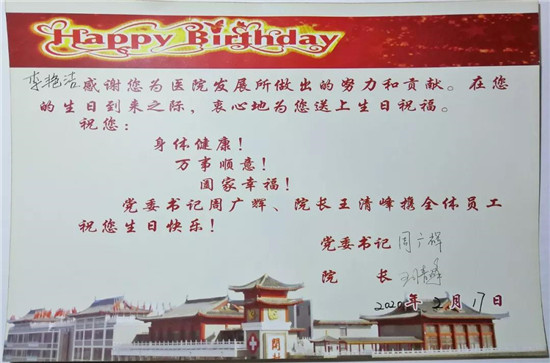 Happy Birthday
李艳洁感谢您为医院发展所做出的努力和贡献。在您
的生日到来之际，衷心地为您送上生日祝福。
祝您：
身体健康！
万事顺意！
阖家幸福！
党委书记周广辉、院长王清峰携全体员工
祝您生日快乐！
党委书记 周广辉
院 长 王清峰
2020年2月17日